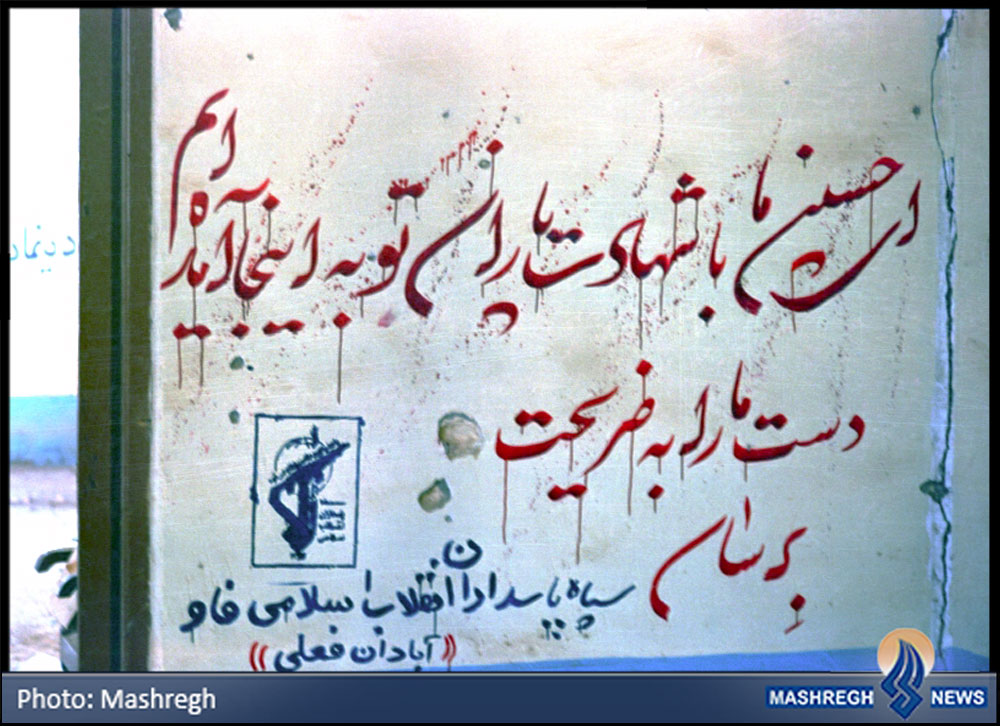 ای حسین ما با شهادت یاران تو به اینجا آمده ایم
دست ما را به ضریحت
برسان
سپاه پاسداران انقلاب اسلامی فاو
((آبادان فعلی))
Photo: Mashregh
MASHREGH NEWS